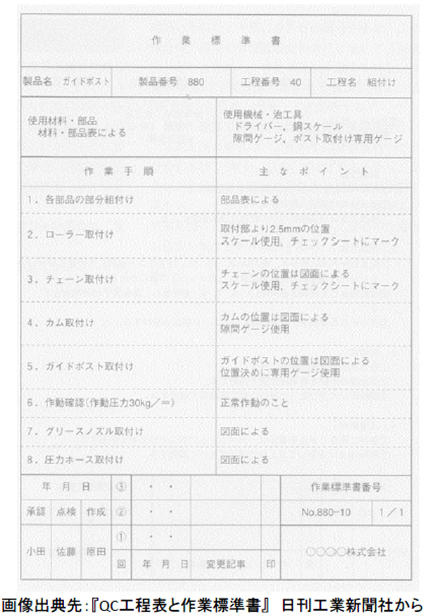 作業標準書
製品名 ガイドポスト 製品番号 880 工程番号 40 工程名 組付け
使用材料・部品
材料・部品表による
使用機械・治工具
ドライバー，鋼スケール
隙間ゲージ，ポスト取付け専用ゲージ
作業手順 主なポイント
1．各部品の部分組付け 部品表による
2．ローラー取付け 取付部より2.5mmの位置
スケール使用，チェックシートにマーク
3．チェーン取付け チェーンの位置は図面による
スケール使用，チェックシートにマーク
4．カム取付け カムの位置は図面による
隙間ゲージ使用
5．ガイドポスト取付け ガイドポストの位置は図面による
位置決めに専用ゲージ使用
6．作動確認（作動圧力30kg／＝） 正常作動のこと
7．グリースノズル取付け 図面による
8．圧力ホース取付け 図面による
年 月 日 ③ ・ ・ 作業標準書番号
承認 点検 作成 ② ・ ・ No.880-10 1／1
小田 佐藤 原田 ① ・ ・ ○○○○株式会社
回 年 月 日 変更記事 印
画像出典先：『QC工程表と作業標準書』 日刊工業新聞社から